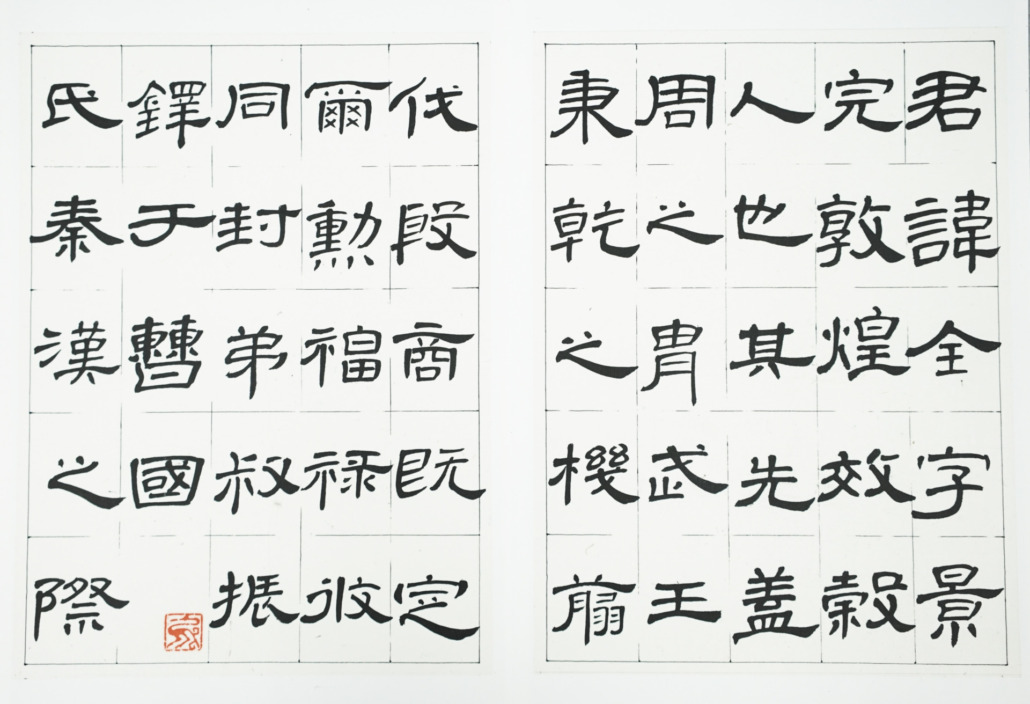 君諱全字景
完敦煌效穀
人也其先蓋
周之胄武王
秉乾之機翦
伐殷商既定
爾勳福祿攸
同封弟叔振
鐸于曹國
氏秦漢之際